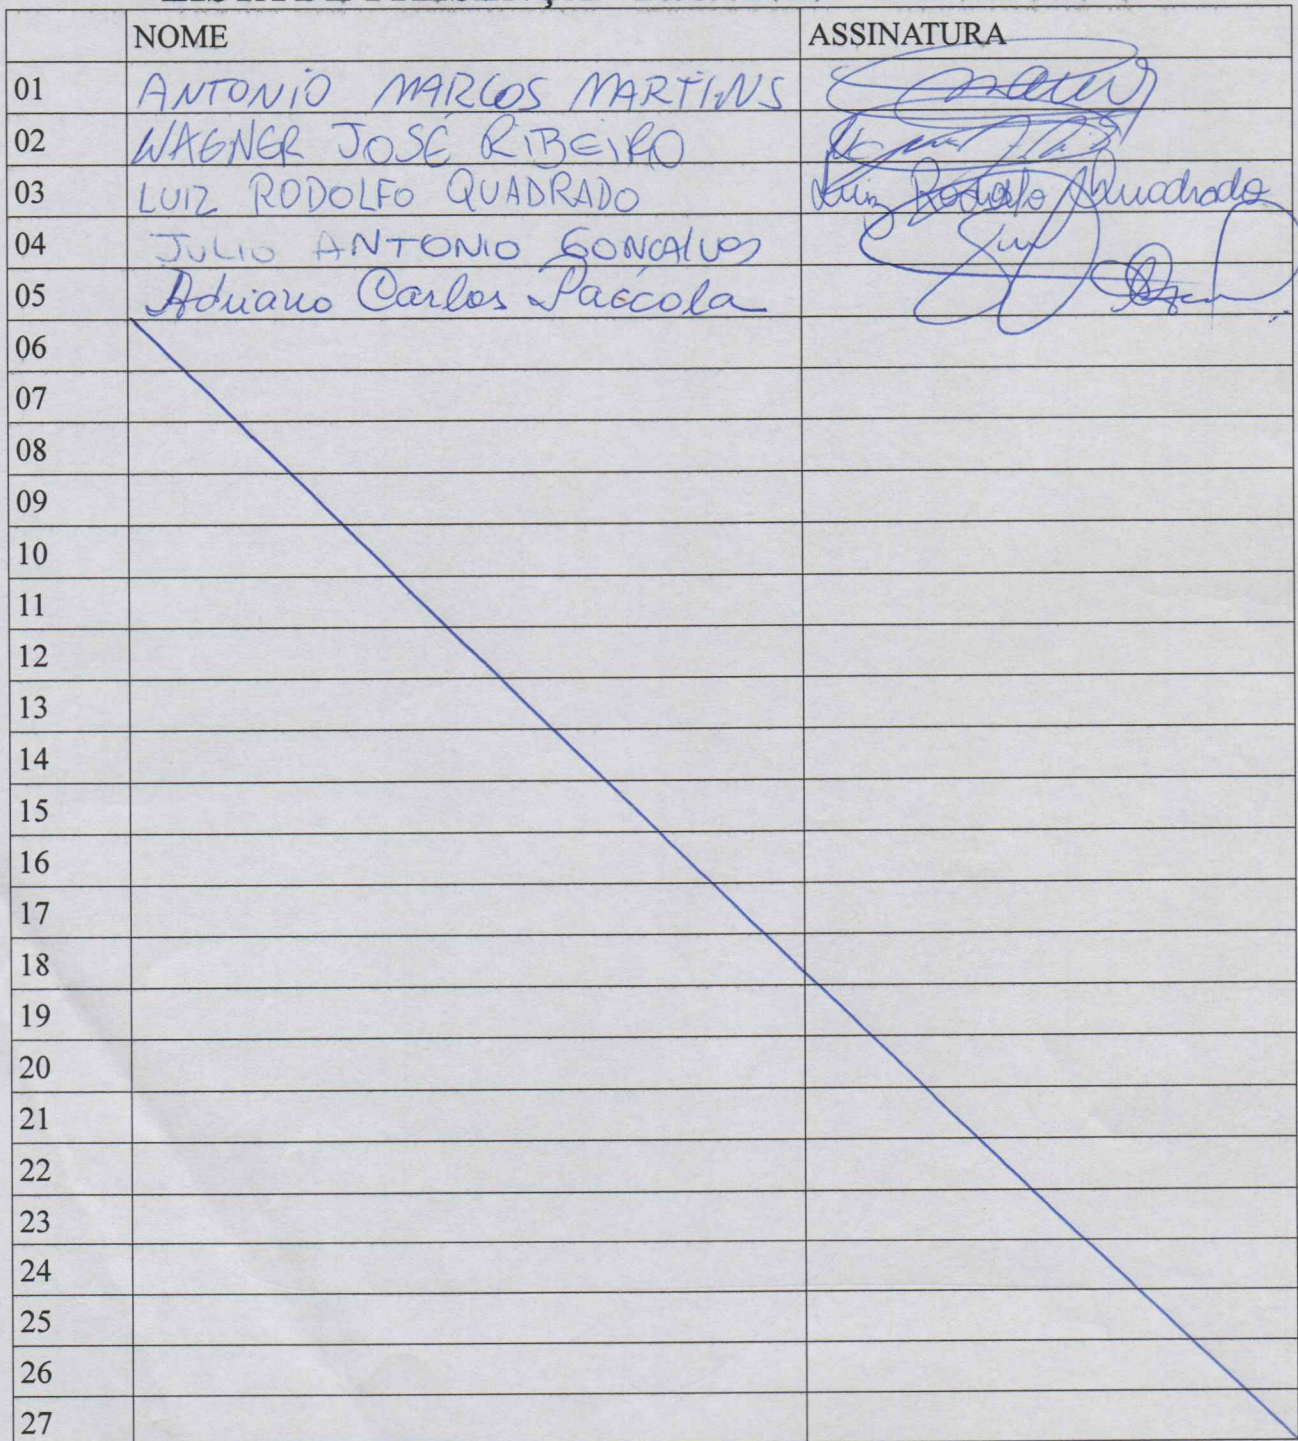 LISTA DE PRESENÇA
NOME ASSINATURA
01 ANTONIO MARCOS MARTINS
02 WAGNER JOSÉ RIBEIRO
03 LUIZ RODOLFO QUADRADO Luiz Rodolfo Quadrado
04 JULIO ANTONIO GONCALVES
05 Adriano Carlos Paccola
06
07
08
09
10
11
12
13
14
15
16
17
18
19
20
21
22
23
24
25
26
27